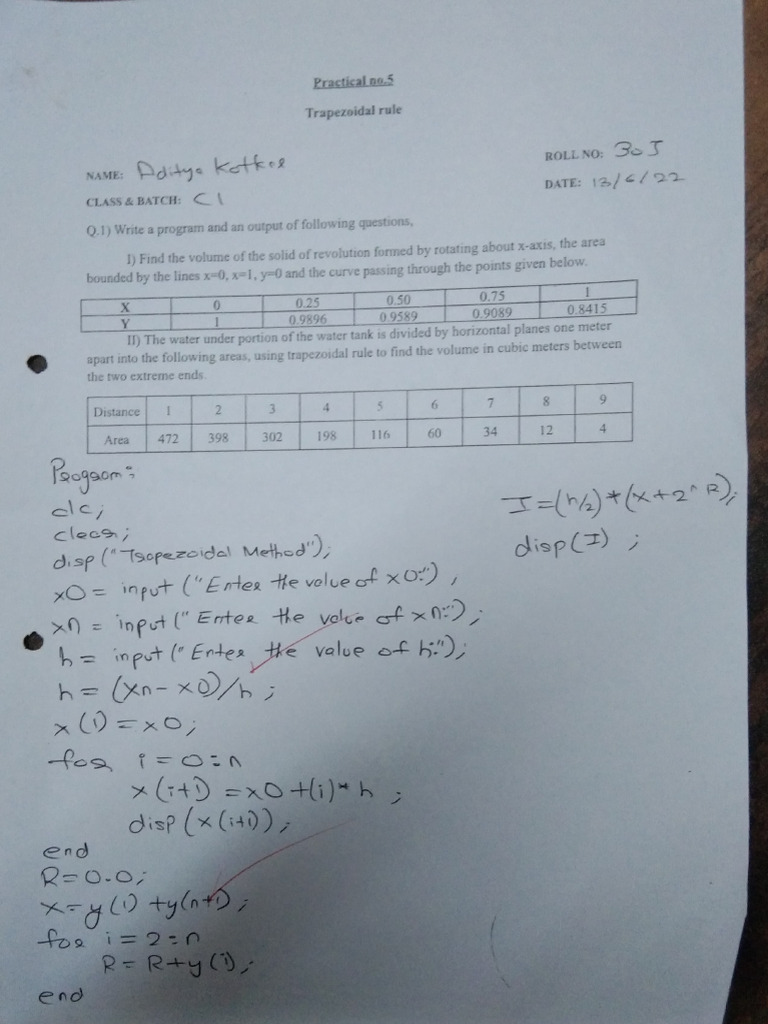 Practical no.5
Trapezoidal rule
NAME: Aditya Kotkar
ROLL NO: 305
CLASS & BATCH: C1
DATE: 13/6/22
Q.1) Write a program and an output of following questions,
I) Find the volume of the solid of revolution formed by rotating about x-axis, the area
bounded by the lines x=0, x=1, y=0 and the curve passing through the points given below.
X 0 0.25 0.50 0.75 1
Y 1 0.9896 0.9589 0.9089 0.8415
II) The water under portion of the water tank is divided by horizontal planes one meter
apart into the following areas, using trapezoidal rule to find the volume in cubic meters between
the two extreme ends.
Distance 1 2 3 4 5 6 7 8 9
Area 472 398 302 198 116 60 34 12 4
Program:
clc;
clear;
disp ("Trapezoidal Method");
x0 = input ("Enter the value of x0:");
xn = input (" Enter the value of xn:");
h = input (" Enter the value of h:");
n = (xn - x0)/h ;
x(1) = x0;
for i = 0:n
x(i+1) = x0 + (i)* h ;
disp (x(i+1));
end
R = 0.0;
x = y(1) + y(n+1);
for i = 2:n
R = R + y(i);
end
I = (h/2)*(x+2* R);
disp(I) ;